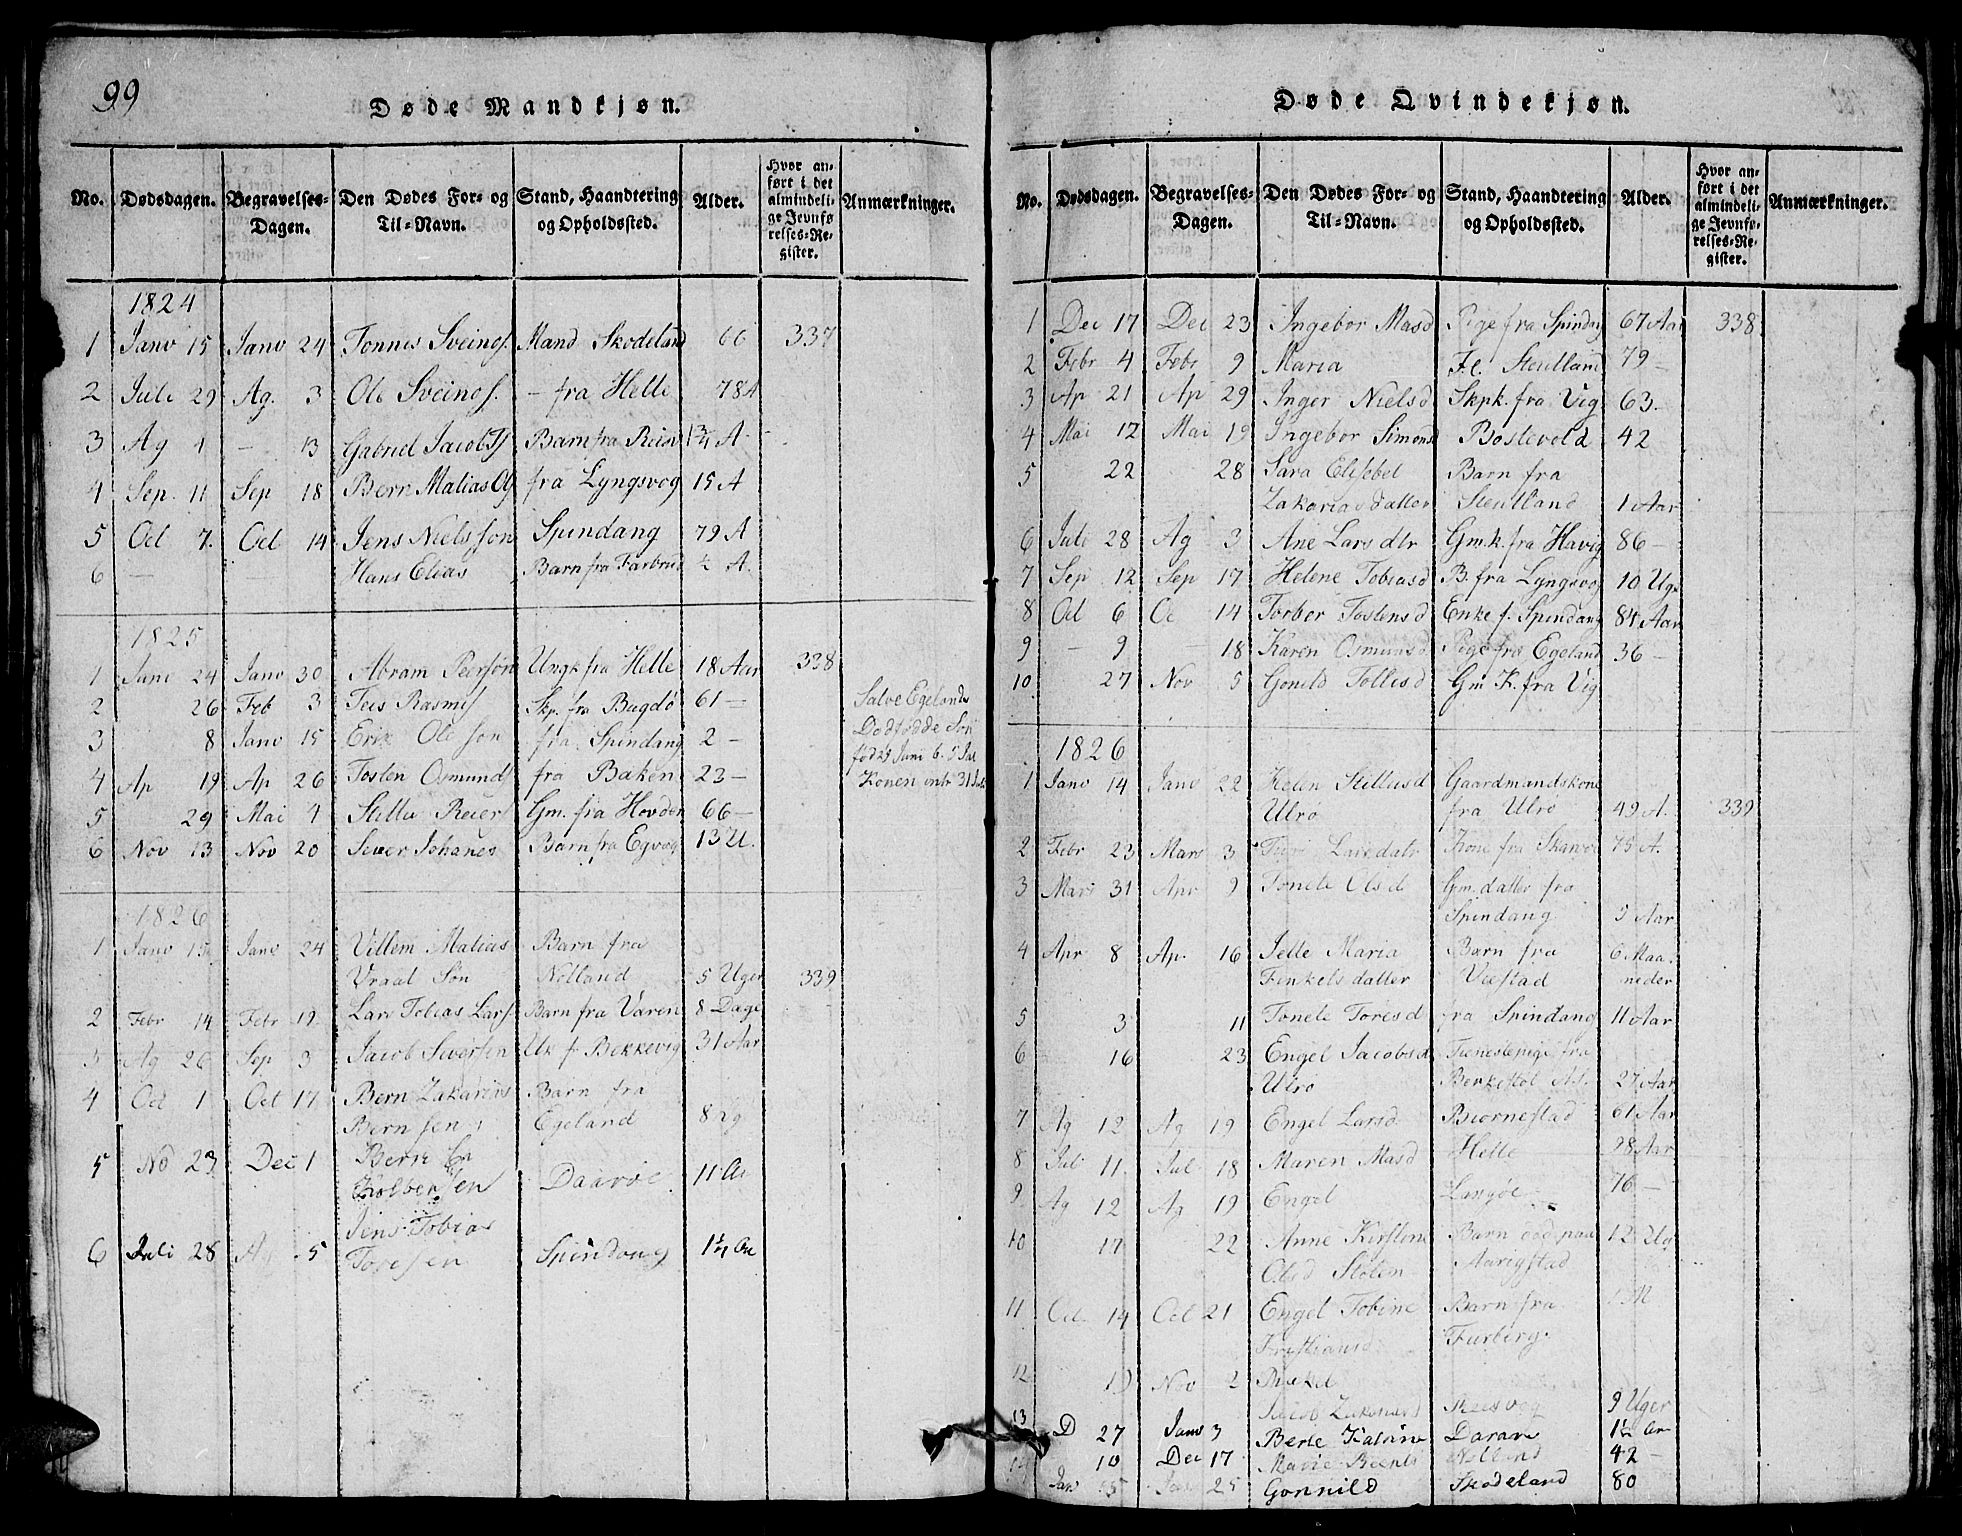 99
Døde Mandkjøn.
No. Dødsdagen. Begravelses-Dagen. Den Dødes For- og Til-Navn. Stand, Haandtering og Opholdssted. Alder. Hvor anført i det almindelige Jevnførelses-Register. Anmærkninger.
1824
1 Janv 15 Janv 24 Tonnes Sveinos. Mand Skodeland 66 337
2 Juli 29 Ag. 3 Ole Sveinos. - fra Helle 78 A
3 Ag 1 - 13 Gabriel Jacobs Barn fra 1¾ A
4 Sep. 11 Sep 18 Bern Matias Ols fra Lyngsvog 15 A
5 Oct 7. Oct 14 Jens Nielsson Spindang 79 A
6 — Hans Elias Barn fra ½ A.
1825
1 Janv 24 Janv 30 Abram Peersøn Ungk fra Helle 18 Aar 338
2 26 Feb 3 Teis Rasmus Skp. fra Bugdø 61 —
3 8 Janv 15 Erik Olesson fra Spindang 2 —
4 Ap 19 Ap 26 Tosten Osmunds fra Baken 23 —
5 29 Mai 4 Stille Reiers Gm. fra Hovden 66 —
6 Nov 13 Nov 20 Siver Johanes Barn fra Egvog 13 U.
Salve Egelands
Dødfødde Søn
fød 29 Juni 6.
Konen
1826
1 Janv 15 Janv 24 Villem Matias Barn fra
Vraal Søn Nolland 5 Uger 339
2 Febr 14 Febr 19 Lars Tobias Lars Barn fra Varen 8 Dage
3 Ag 26 Sep 3 Jacob Siversen Uk f Bekkevig 31 Aar
4 Oct 1 Oct 17 Bern Zakarias Barn fra
Bernsen Egeland 8 ug
5 No 23 Dec 1 Bernt
Kolbensen Daarøe 11 Ar
6 Juli 28 Ag 5 Jens Tobias
Toresen Spindang 1½ Ar
Døde Qvindekjøn.
No. Dødsdagen. Begravelses-Dagen. Den Dødes For- og Til-Navn. Stand, Haandtering og Opholdssted. Alder. Hvor anført i det almindelige Jevnførelses-Register. Anmærkninger.
1 Dec 17 Dec 23 Ingebor Masd Pige fra Spindang 67 Aar 338
2 Febr 4 Febr 9 Maria Fl. Steutland 79 —
3 Ap 21 Ap 29 Inger Nielsd Skpk. fra Vig 63 —
4 Mai 12 Mai 19 Ingebor Simonsd Bostevold 42
5 22 28 Sara Elisebet Barn fra
Zakariasdatter Steutland 1 Aar
6 Juli 28 Ag 3 Ane Larsdtr Gm.k. fra Havig 86 —
7 Sep 12 Sep 17 Helene Tobiasd B. fra Lyngsvog 10 Uge
8 Oct 6 Oc 14 Torbor Tostensd Enke f. Spindang 84 Aar
9 — 9 — 18 Karen Osmunsd Pige fra Egeland 36 —
10 27 Nov 5 Gonild Tollisd Gm K. fra Vig
1826
1 Janv 14 Janv 22 Helen Stillusd Gaardmandskone
Ulrø fra Ulrø 49 A. 339
2 Febr 23 Mars 3 Turi Larsdatr Kone fra Skarvøe 75 A.
3 Mars 31 Apr 9 Tonete Olsd Gm. datter fra
Spindang 5 Aar
4 Apr 8 Ap. 16 Jelle Maria Barn fra 6 Maa-
Finkelsdatter Viestad neder
5 3 11 Tonete Toresd fra Spindang 11 Aar
6 16 23 Engel Jacobsd Tienestepige fra
Ulrø 27 Aar
7 Ag 12 Ag 19 Engel Larsd Biornestad 61 Aar
8 Jul 11. Jul 18 Maren Masd Helle 28 Aar
9 Ag 12 Ag 19 Engel Langøe 76 —
10 17 22 Anne Kirstine Barn død paa 12 Ug
Olsd Stolen Aarigstad
11 Oct 14 Oct 21 Engel Tobine Barn fra M
Kristiansd Furberg.
12 19 Nov 2
13 Jacob Zakarias 9 Uger
D 27 Janv 3 Berte Katrine 1½ Ar
14 10 Dec 17 Marie Nolland 42 —
Jan 15 Jan 25 Gonnild Skodeland 80